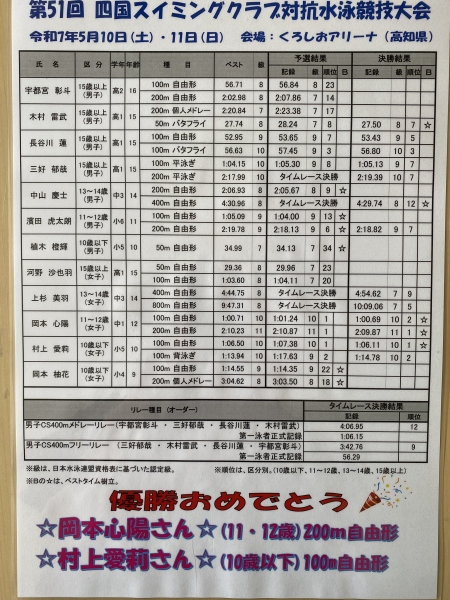 第51回 四国スイミングクラブ対抗水泳競技大会
令和7年5月10日(土)・11日(日) 会場：くろしおアリーナ（高知県）
氏 名 区 分 学年 年齢 種 目 ベスト 級 予選結果 決勝結果
記録 級 順位 B 記録 級 順位 B
宇都宮 彰斗 15歳以上(男子) 高2 16 100m 自由形 56.71 8 56.84 8 23
200m 自由形 2:02.98 8 2:07.86 7 14
木村 雷武 15歳以上(男子) 高1 15 200m 個人メドレー 2:20.84 7 2:23.38 7 17
50m バタフライ 27.74 8 28.24 7 8 27.50 8 7 ☆
長谷川 蓮 15歳以上(男子) 高1 15 100m 自由形 52.95 9 53.65 9 7 53.43 9 5
100m バタフライ 56.63 10 57.45 9 3 56.80 10 3
三好 郁哉 15歳以上(男子) 高1 15 100m 平泳ぎ 1:04.15 10 1:05.30 9 8 1:05.13 9 7
200m 平泳ぎ 2:17.99 10 タイムレース決勝 2:19.39 10 7
中山 慶士 13～14歳(男子) 中3 14 200m 自由形 2:06.93 8 2:05.67 8 9 ☆
400m 自由形 4:30.96 8 タイムレース決勝 4:29.74 8 12 ☆
濱田 虎太朗 11～12歳(男子) 小6 11 100m 自由形 1:05.09 9 1:04.00 9 13 ☆
200m 自由形 2:19.78 9 2:18.13 9 6 ☆ 2:18.82 9 7
植木 橙輝 10歳以下(男子) 小5 10 50m 自由形 34.99 7 34.13 7 34 ☆
河野 沙也羽 15歳以上(女子) 高1 15 50m 自由形 29.36 8 29.96 7 23
100m 自由形 1:03.60 8 1:04.11 7 20
上杉 美羽 13～14歳(女子) 中3 14 400m 自由形 4:44.75 8 タイムレース決勝 4:54.62 7 9
800m 自由形 9:47.31 8 タイムレース決勝 10:09.06 7 5
岡本 心陽 11～12歳(女子) 中1 12 100m 自由形 1:00.71 10 1:01.24 10 1 1:00.69 10 2 ☆
200m 自由形 2:10.23 11 2:10.87 11 1 2:09.87 11 1 ☆
村上 愛莉 10歳以下(女子) 小5 10 100m 自由形 1:06.50 10 1:07.38 10 1 1:06.11 10 1 ☆
100m 背泳ぎ 1:13.94 10 1:17.63 9 2 1:14.78 10 2
岡本 柚花 10歳以下(女子) 小4 9 100m 自由形 1:14.55 9 1:14.35 9 22 ☆
200m 個人メドレー 3:04.62 8 3:03.50 8 18 ☆
リレー種目（オーダー） タイムレース決勝結果
記録 順位
男子CS400mメドレーリレー（宇都宮彰斗 ・ 三好郁哉 ・ 長谷川蓮 ・ 木村雷武） 4:06.95 12
第一泳者正式記録 1:06.15
男子CS400mフリーリレー （三好郁哉 ・ 木村雷武 ・ 長谷川蓮 ・ 宇都宮彰斗） 3:42.76 9
第一泳者正式記録 56.29
※級は、日本水泳連盟資格表に基づいた認定級。 ※順位は、区分別。(10歳以下、11～12歳、13～14歳、15歳以上)
※Bの☆は、ベストタイム樹立。
優勝おめでとう
☆岡本心陽さん☆(11・12歳)200m自由形
☆村上愛莉さん☆(10歳以下)100m自由形